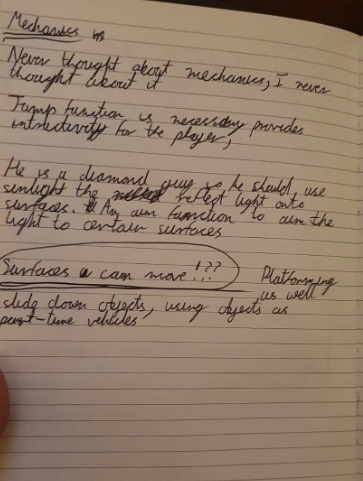 Mechanics
Never thought about mechanics, I never
thought about it
Jump function is necessary provides
for the player,
He is a diamond guy so he should, use
sunlight the reflect light onto
surfaces. An aim function to aim the
light to certain surfaces
Surfaces a can move!??
Platforming
as well
slide down objects, using objects as
part-time vehicles